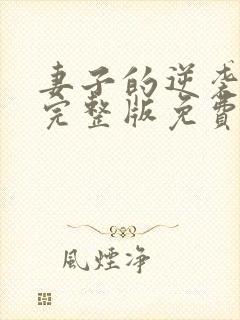 妻子的逆袭
完整版免費
風煙净